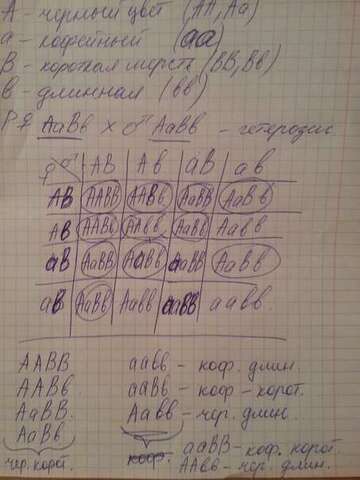 А - черный цвет (АА, Аа)
а - кофейный (аа)
В - короткая шерсть (ВВ, Вв)
в - длинная (вв)
Р ♀ АаВв х ♂ АаВв - гетерозиг
♀ ♂ АВ Ав аВ ав
АВ ААВВ ААВв АаВВ АаВв
Ав ААВв ААвв АаВв Аавв
аВ АаВВ АаВв ааВВ АаВв
ав АаВв Аавв ааВВ аавв.
ААВВ аавв - коф. длин.
ААВв ааВв - коф - корот.
АаВВ. Аавв - чер. длин.
АаВв
чер. корот. коф. ааВВ - коф. корот.
ААвв - чер. длин.